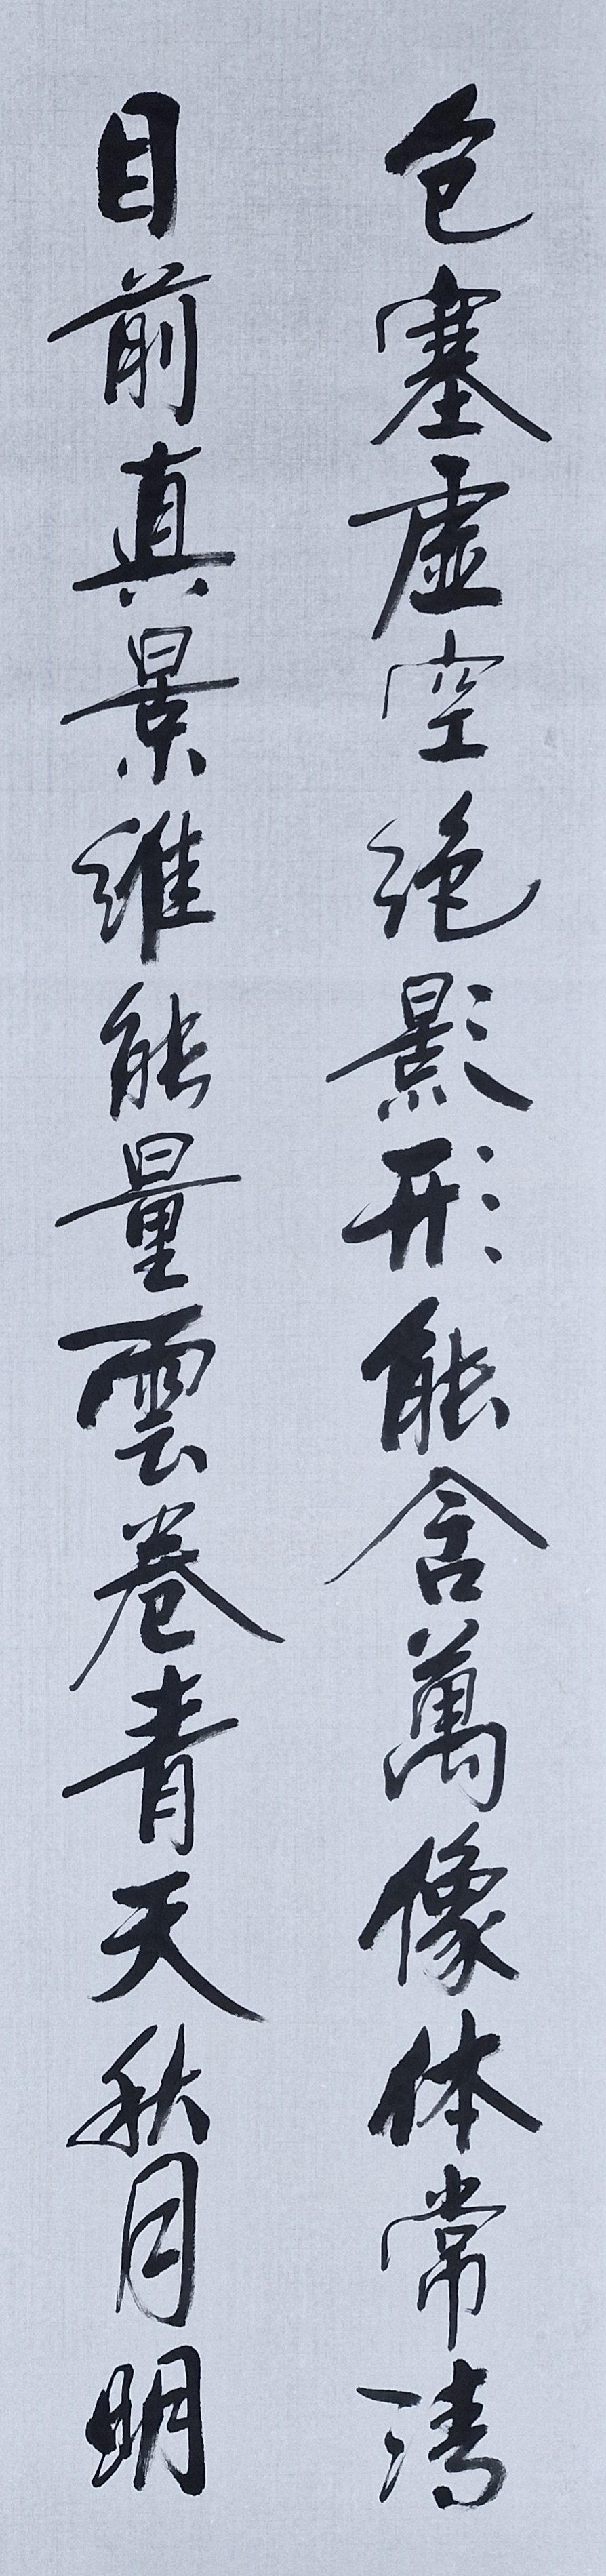 包塞虚空絶影形能含萬像体常清
目前真景维能量雲卷青天秋月明